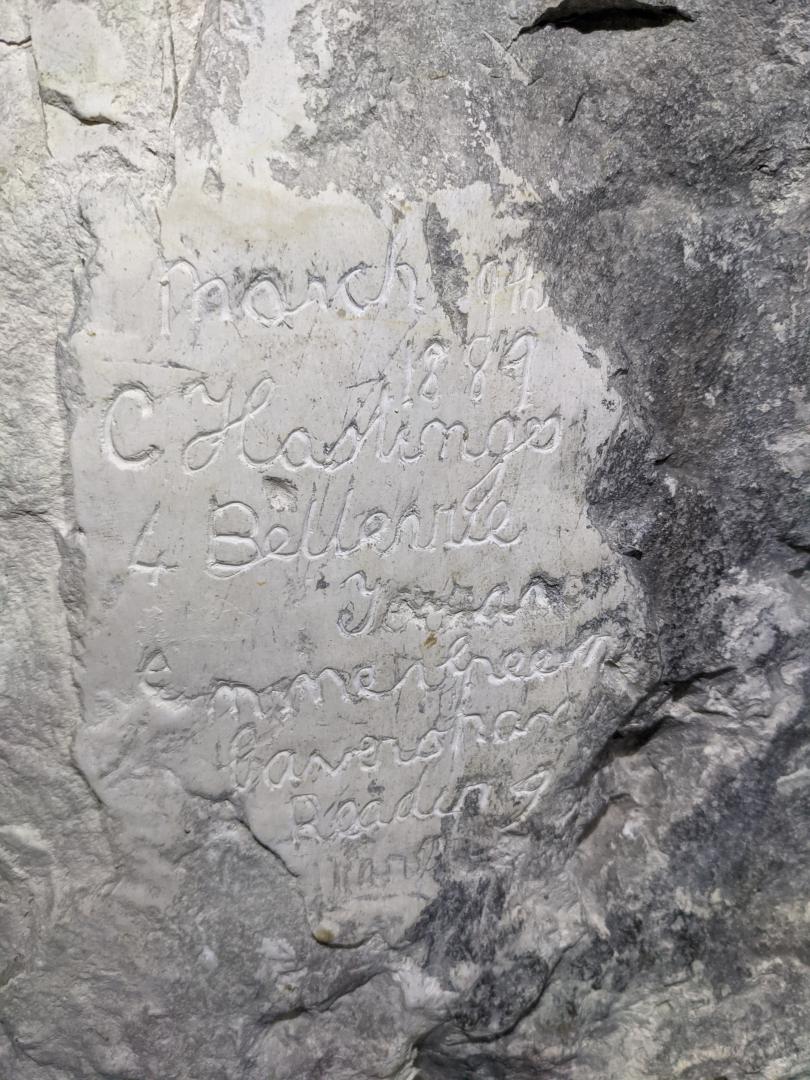 March 9th
1889
C Hastings
4 Bellevue
Emmergreen
Caversham
Reading